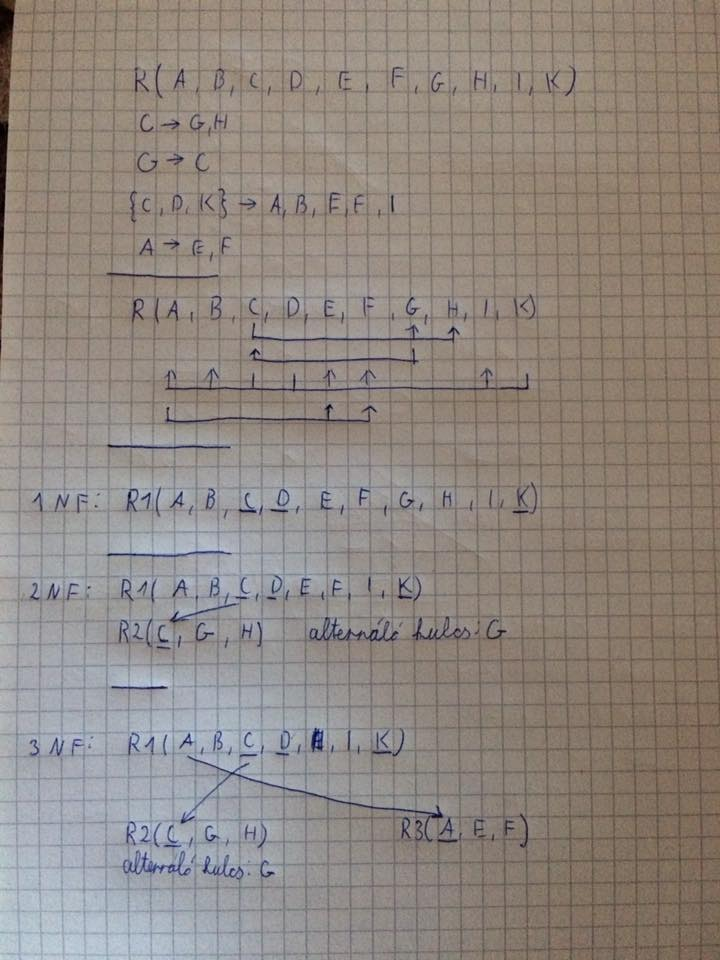 R(A, B, C, D, E, F, G, H, I, K)
C → G,H
G → C
{C, D, K} → A, B, E, F, I
A → E, F
R(A, B, C, D, E, F, G, H, I, K)
1 NF: R1(A, B, C, D, E, F, G, H, I, K)
2 NF: R1(A, B, C, D, E, F, I, K)
R2(C, G, H) alternáló kulcs: G
3 NF: R1(A, B, C, D, I, K)
R2(C, G, H) R3(A, E, F)
alternáló kulcs: G